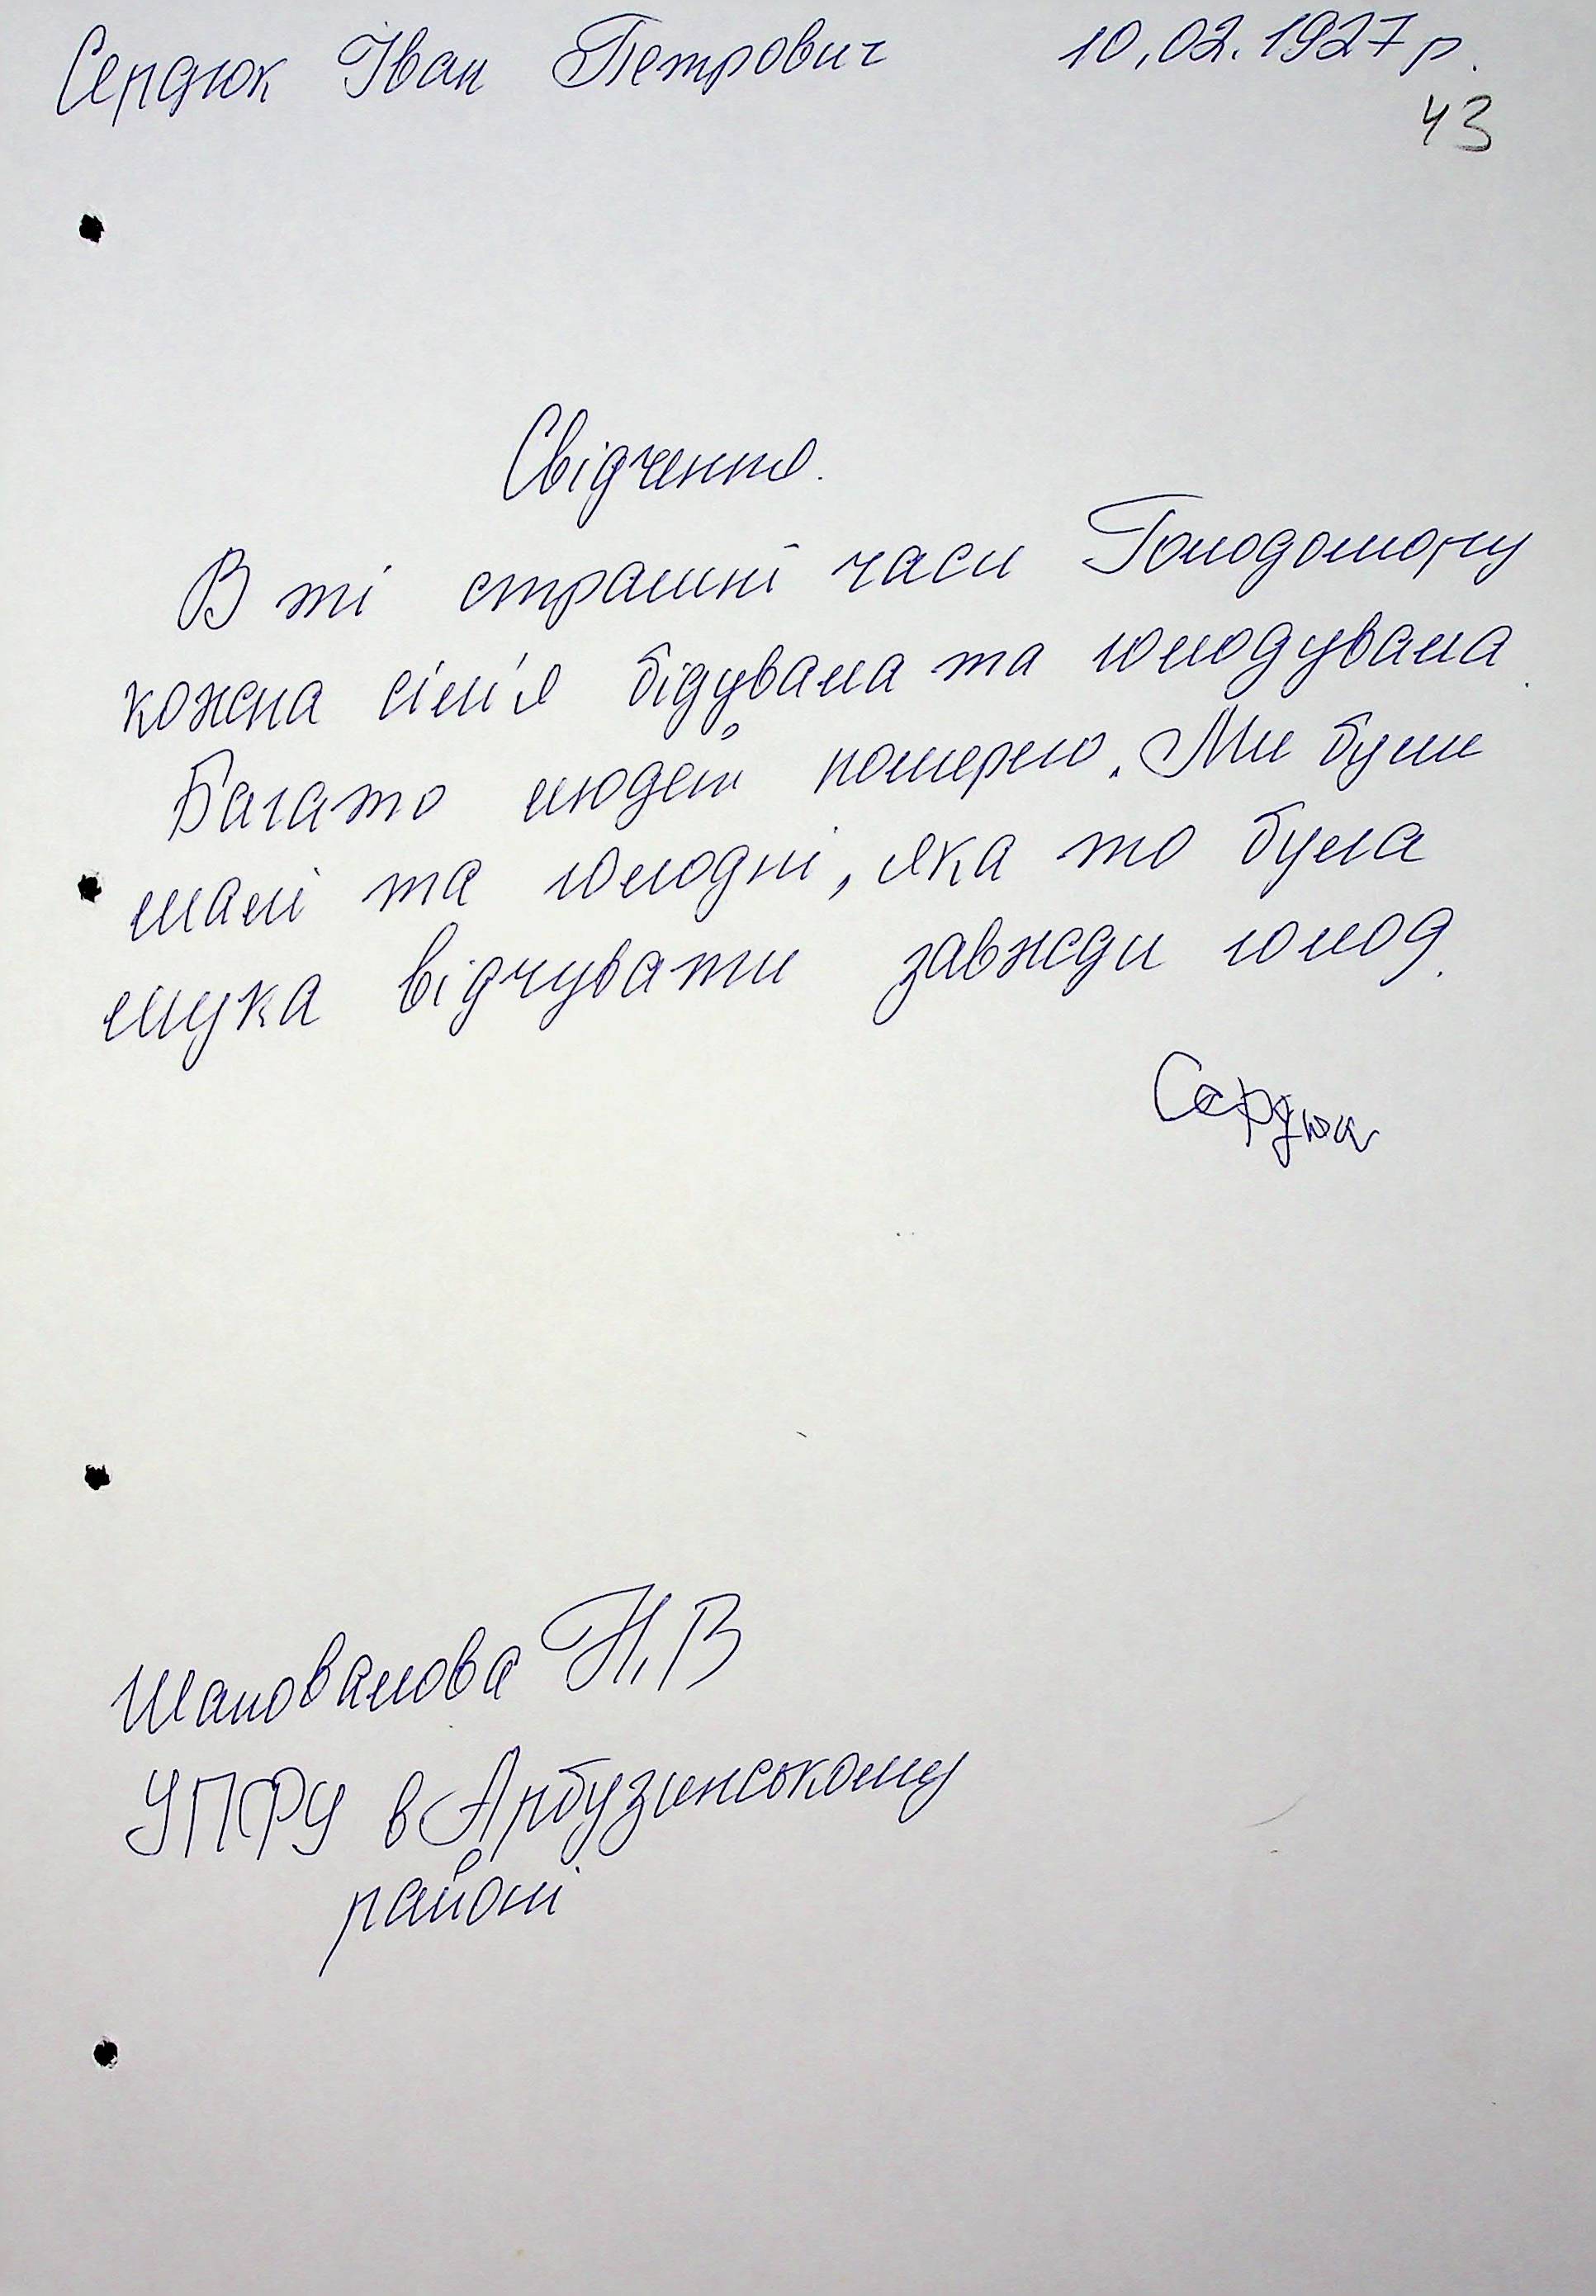 Сердюк Іван Петрович 10.02.1927 р.
43
Свідчення.
В ті страшні часи Голодомору
кожна сім'я бідувала та голодувала.
Багато людей померло. Ми були
малі та голодні, яка то була
мука відчувати завжди голод.
Сердюк
Шаповалова Н.В
УПФУ в Арбузинському
районі